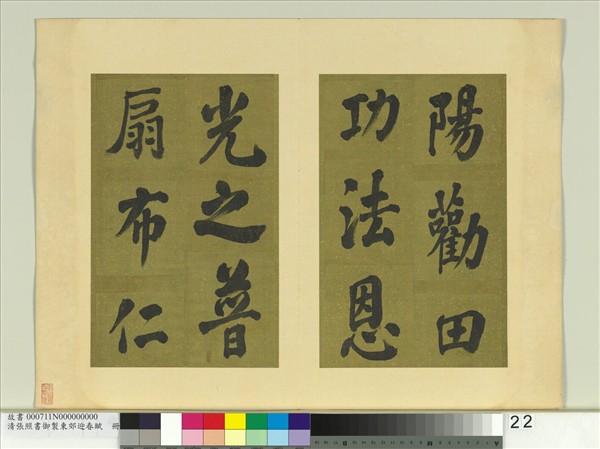 陽勸田
功法恩
光之普
扇布仁
故書 000711N000000000
清張照書御製東郊迎春賦 冊
22